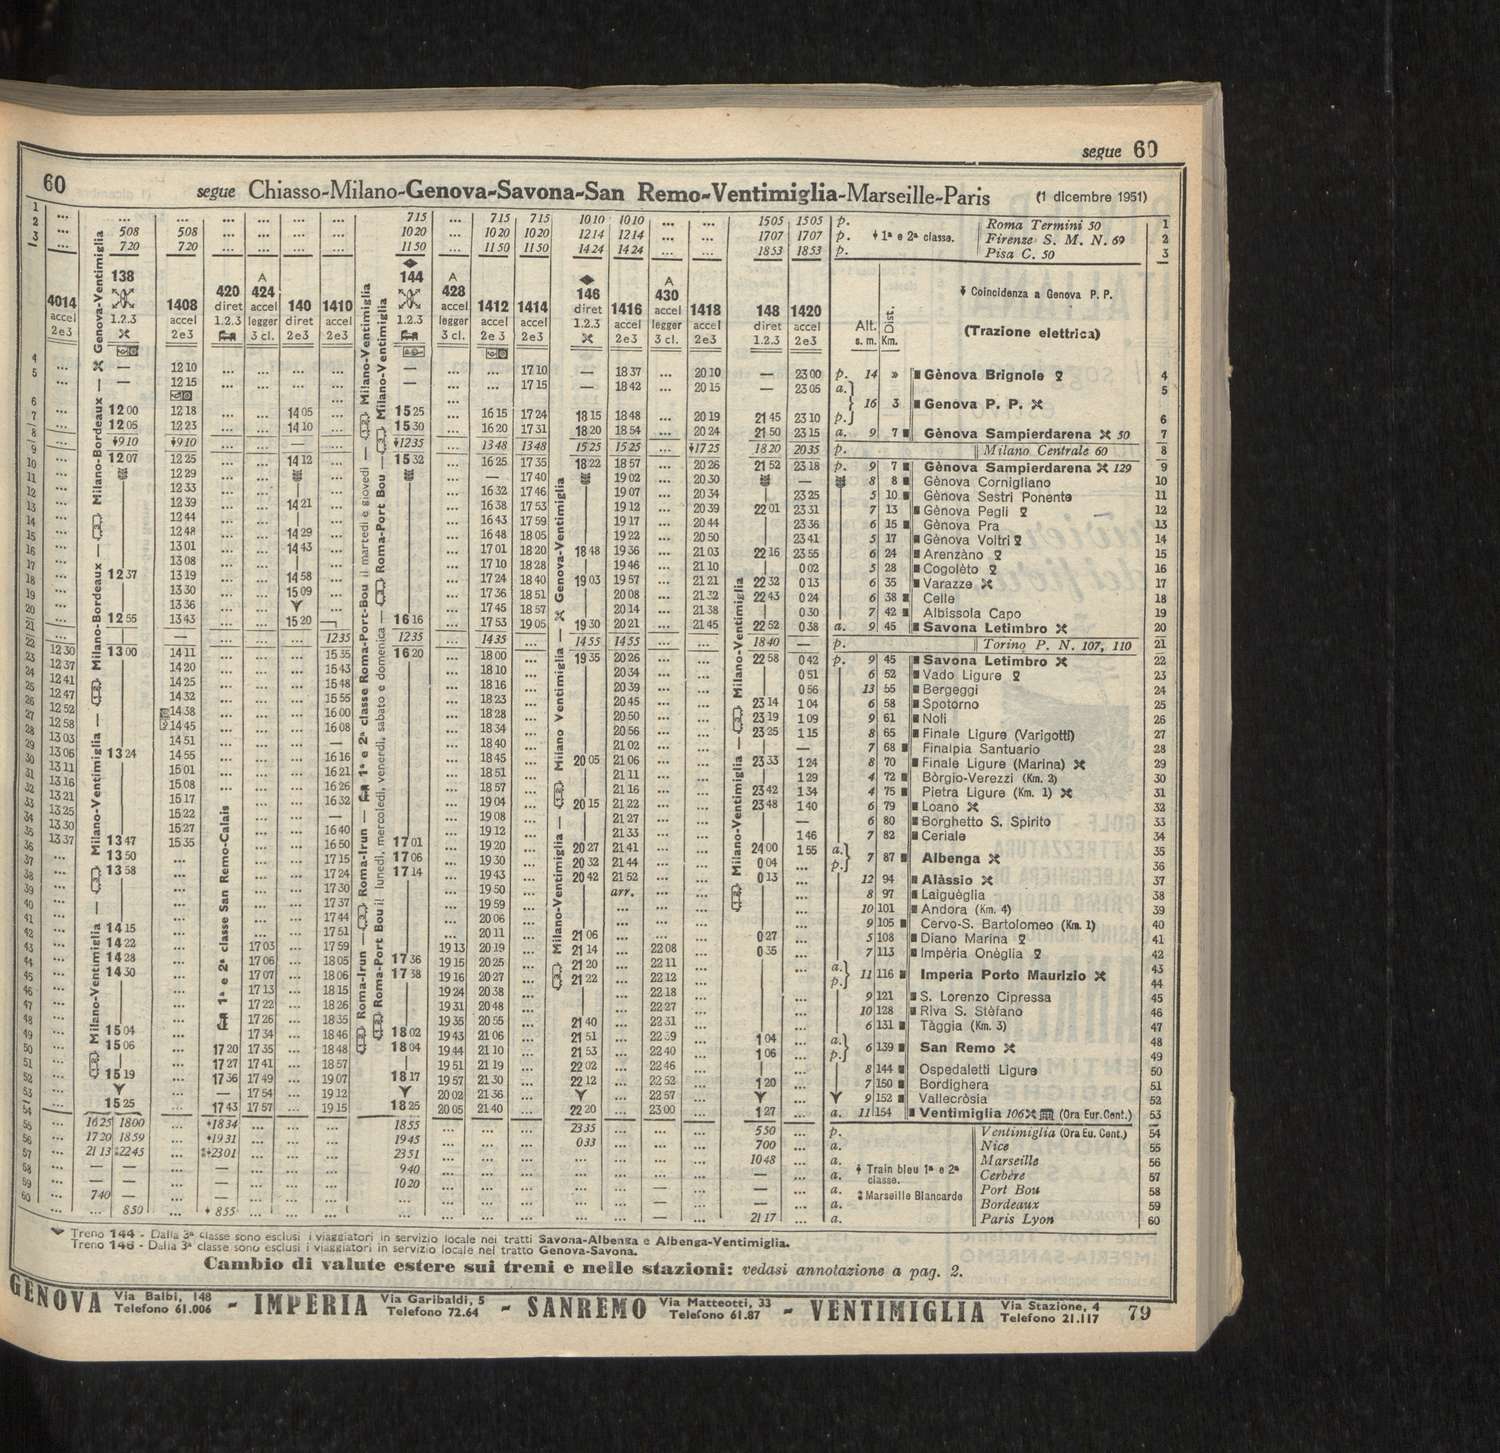 segue 60
60 segue Chiasso-Milano-Genova-Savona-San Remo-Ventimiglia-Marseille-Paris (1 dicembre 1951)
1 ... ... ... ... ... ... ... 715 ... 715 715 1010 1010 ... ... 1505 1505 p. Roma Termini 50 1
2 ... 508 508 ... ... ... ... 1020 ... 1020 1020 1214 1214 ... ... 1707 1707 p. 1ª e 2ª classe. Firenze S. M. N. 69 2
3 ... 720 720 ... ... ... ... 1150 ... 1150 1150 1424 1424 ... ... 1853 1853 p. Pisa C. 50 3
4014 accel 2e3
138 1.2.3
1408 accel 2e3
420 diret 1.2.3
A 424 accel legger 3 cl.
140 diret 2e3
1410 accel 2e3
144 1.2.3
A 428 accel legger 3 cl.
1412 accel 2e3
1414 accel 2e3
146 diret 1.2.3
1416 accel 2e3
A 430 accel legger 3 cl.
1418 accel 2e3
148 diret 1.2.3
1420 accel 2e3
Alt. s. m. Dist. Km.
Coincidenza a Genova P. P.
(Trazione elettrica)
Milano-Ventimiglia — Milano-Ventimiglia — Milano-Bordeaux — Milano-Bordeaux — Genova-Ventimiglia
1ª e 2ª classe San Remo-Calais
Roma-Irun — Roma-Irun — 1ª e 2ª classe Roma-Port-Bou il martedì e giovedì — Milano-Ventimiglia
Roma-Port Bou il lunedì, mercoledì, venerdì, sabato e domenica — Roma-Port Bou — Milano-Ventimiglia
Milano-Ventimiglia — Milano Ventimiglia — Genova-Ventimiglia
Milano-Ventimiglia — Milano-Ventimiglia
— 1210 — 1710 — 1837 2010 — 2300 p. 14 » Gènova Brignole 4
— 1215 — 1715 — 1842 2015 — 2305 a. 5
16 3 Genova P. P.
1200 1218 1405 1525 1615 1724 1815 1848 2019 2145 2310 p. 6
1205 1223 1410 1530 1620 1731 1820 1854 2024 2150 2315 a. 9 7 Gènova Sampierdarena 50 7
910 910 — 1235 1348 1348 1525 1525 1725 1820 2035 p. Milano Centrale 60 8
1207 1225 1412 1532 1625 1735 1822 1857 2026 2152 2318 p. 9 7 Gènova Sampierdarena 129 9
1229 — 1740 1902 2030 — 8 8 Gènova Cornigliano 10
1233 1632 1746 1907 2034 2325 5 10 Gènova Sestri Ponente 11
1239 1421 1638 1753 1912 2039 2201 2331 7 13 Gènova Pegli 12
1244 1643 1759 1917 2044 2336 6 15 Gènova Pra 13
1248 1429 1648 1805 1922 2050 2341 5 17 Gènova Voltri 14
1301 1443 1701 1820 1848 1936 2103 2216 2355 6 24 Arenzàno 15
1308 1710 1828 1946 2110 002 5 28 Cogolèto 16
1237 1319 1458 1724 1840 1903 1957 2121 2232 013 6 35 Varazze 17
1330 1509 1736 1851 2008 2132 2243 024 6 38 Celle 18
1336 1745 1857 2014 2138 030 7 42 Albissola Capo 19
1255 1343 1520 1616 1753 1905 1930 2021 2145 2252 038 a. 9 45 Savona Letimbro 20
— 1235 1235 1435 1455 1455 1840 — p. Torino P. N. 107, 110 21
1230 1300 1411 1535 1620 1800 1935 2026 2258 042 p. 9 45 Savona Letimbro 22
1237 1420 1543 1810 2034 051 6 52 Vado Ligure 23
1241 1425 1548 1816 2039 056 13 55 Bergeggi 24
1247 1432 1555 1823 2045 2314 104 6 58 Spotorno 25
1252 1438 1600 1828 2050 2319 109 9 61 Noli 26
1258 1445 1608 1834 2056 2325 115 8 65 Finale Ligure (Varigotti) 27
1303 1451 — 1840 2102 — 7 68 Finalpia Santuario 28
1306 1324 1455 1616 1845 2005 2106 2333 124 8 70 Finale Ligure (Marina) 29
1311 1501 1621 1851 2111 129 4 72 Bòrgio-Verezzi (Km. 2) 30
1316 1508 1626 1857 2116 2342 134 4 75 Pietra Ligure (Km. 1) 31
1321 1517 1632 1904 2015 2122 2348 140 6 79 Loano 32
1325 1522 — 1908 2127 — 6 80 Borghetto S. Spirito 33
1330 1527 1640 1912 2133 146 7 82 Ceriale 34
1337 1347 1535 1650 1701 1920 2027 2141 2400 155 a. 35
7 87 Albenga
1350 1715 1706 1930 2032 2144 004 p. 36
1358 1724 1714 1943 2042 2152 013 12 94 Alàssio 37
1730 1950 arr. 8 97 Laiguèglia 38
1737 1959 10 101 Andora (Km. 4) 39
1744 2006 9 105 Cervo-S. Bartolomeo (Km. 1) 40
1415 1751 2011 2106 027 5 108 Diano Marina 41
1422 1703 1759 1913 2019 2114 2208 035 7 113 Impèria Onèglia 42
1428 1706 1805 1736 1915 2025 2120 2211 a. 43
11 116 Imperia Porto Maurizio
1430 1707 1806 1738 1916 2027 2122 2212 p. 44
1713 1815 1924 2038 2218 9 121 S. Lorenzo Cipressa 45
1722 1826 1931 2048 2227 10 128 Riva S. Stèfano 46
1726 1835 1935 2055 2140 2231 6 131 Tàggia (Km. 3) 47
1504 1734 1846 1802 1943 2106 2151 2239 104 a. 48
6 139 San Remo
1506 1720 1735 1848 1804 1944 2110 2153 2240 106 p. 49
1727 1741 1857 1951 2119 2202 2246 8 144 Ospedaletti Ligure 50
1519 1736 1749 1907 1817 1957 2130 2212 2252 120 7 150 Bordighera 51
— 1754 1912 2002 2136 2257 9 152 Vallecròsia 52
1525 1743 1757 1915 1825 2005 2140 2220 2300 127 a. 11 154 Ventimiglia 106 (Ora Eur. Cent.) 53
1625 1800 1834 1855 2335 550 p. Ventimiglia (Ora Eu. Cent.) 54
1720 1859 1931 1945 033 700 a. Nice 55
2113 2245 2301 2351 1048 a. Marseille 56
— — — 940 — a. Train bleu 1ª e 2ª classe. Cerbère 57
— — — 1020 — a. Marseille Blancarde Port Bou 58
740 — — — a. Bordeaux 59
850 855 — 2117 a. Paris Lyon 60
Treno 144 - Dalla 3ª classe sono esclusi i viaggiatori in servizio locale nei tratti Savona-Albenga e Albenga-Ventimiglia.
Treno 146 - Dalla 3ª classe sono esclusi i viaggiatori in servizio locale nel tratto Genova-Savona.
Cambio di valute estere sui treni e nelle stazioni: vedasi annotazione a pag. 2.
GENOVA Via Balbi, 148 Telefono 61.006 - IMPERIA Via Garibaldi, 5 Telefono 72.64 - SANREMO Via Matteotti, 33 Telefono 61.87 - VENTIMIGLIA Via Stazione, 4 Telefono 21.117 79